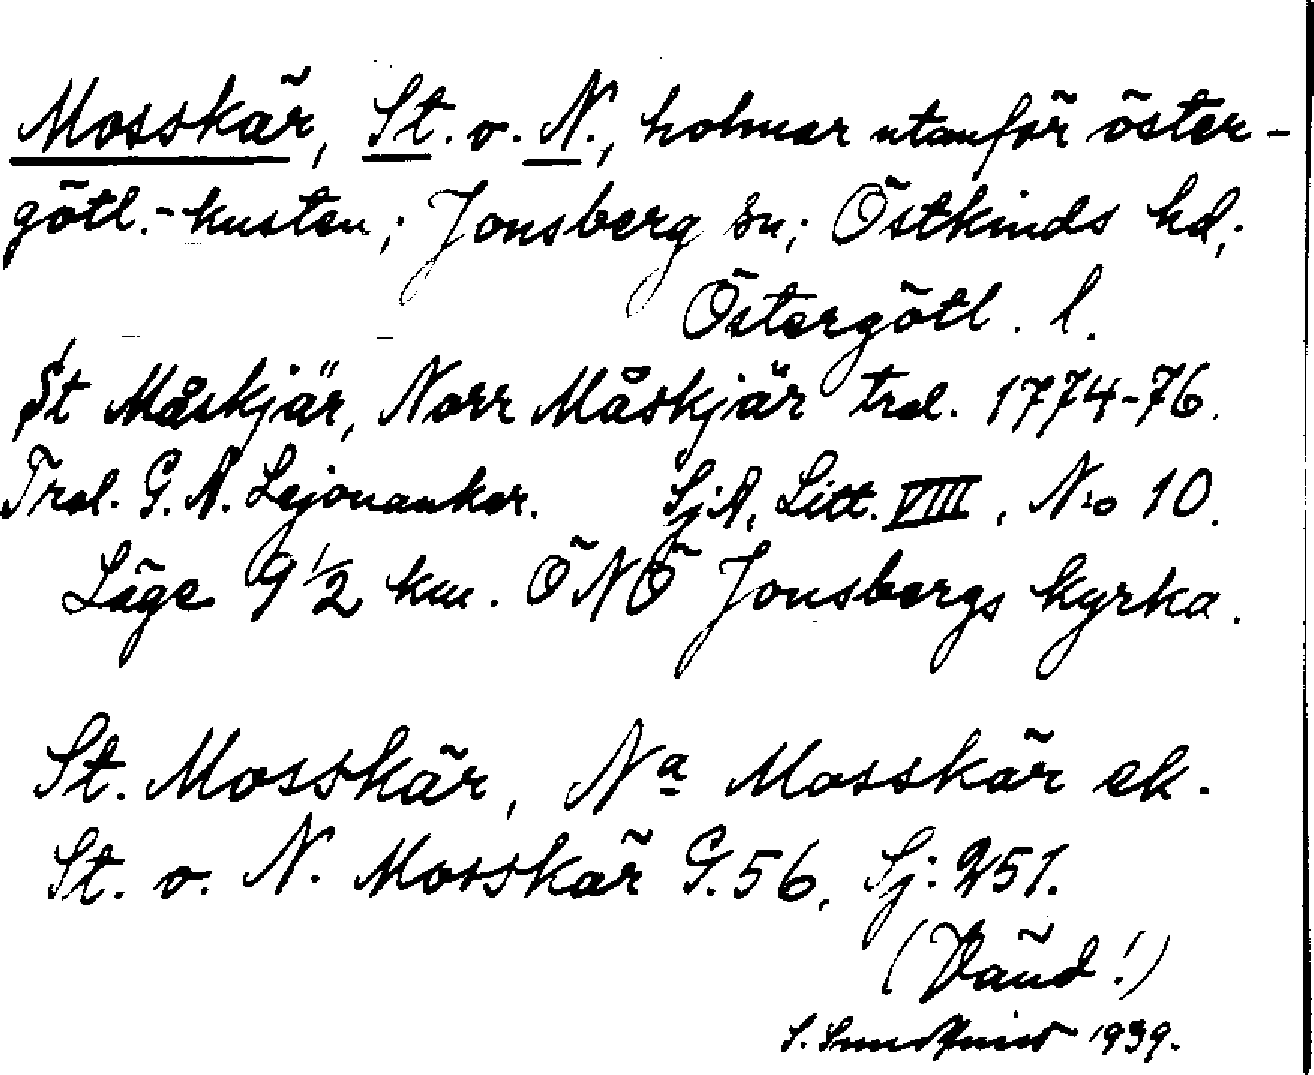 Mosskär, St. o. N., holmar utanför öster-
götl.-kusten; Jonsberg sn; Östkinds hd;
Östergötl. l.
St Måskjär, Norr Måskjär trol. 1774-76.
Trol. G. A. Lejonanker. SjA, Litt. VIII, N:o 10.
Läge 9 1/2 km. ÖNÖ Jonsbergs kyrka.
St. Mosskär, Na Mosskär ek.
St. o. N. Mosskär G. 56, Sj: 251.
(Vänd!)
S. Sundkvist 1939.